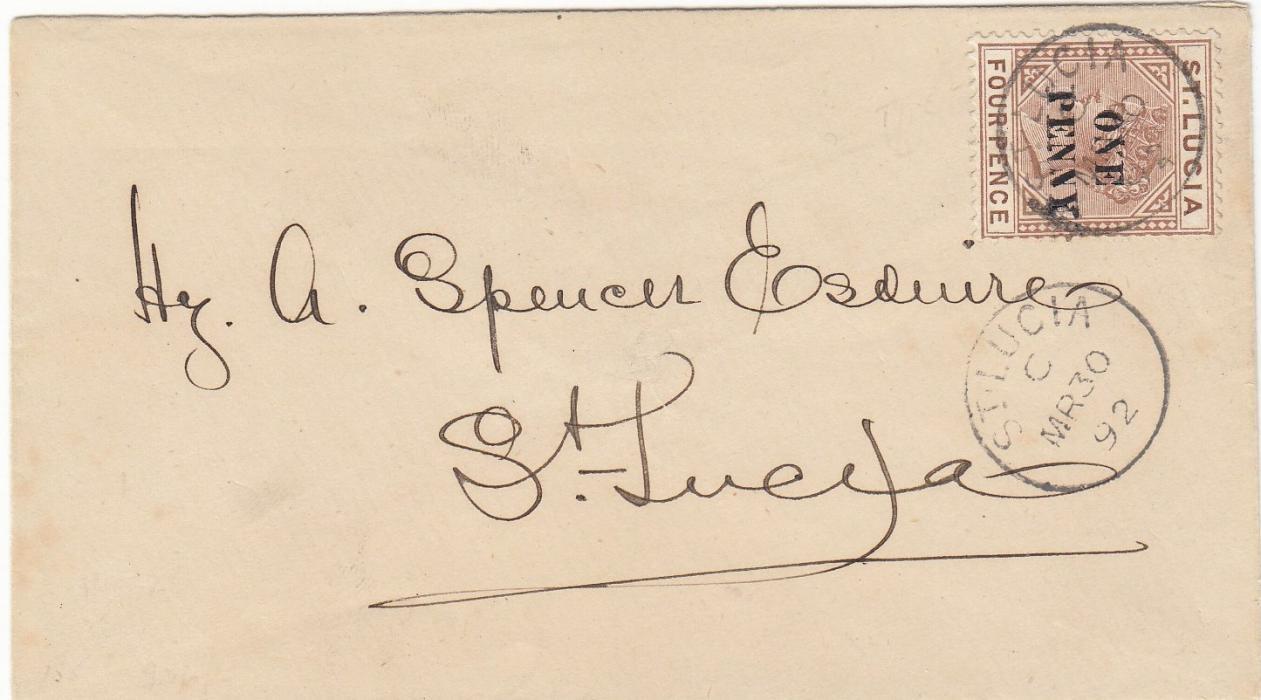 ST. LUCIA
ONE
PENNY
FOUR PENCE
Hy. A. Spencer Esquire
St. Lucia
ST. LUCIA
C
MR 30
92